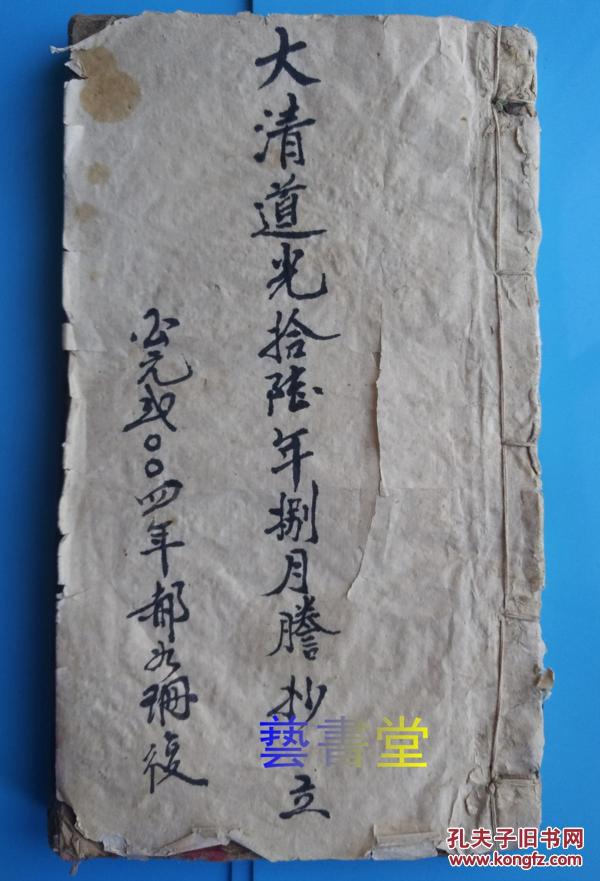 大清道光拾陆年捌月謄抄 立
公元贰〇〇四年郝九珊復
藝書堂
孔夫子旧书网
www.kongfz.com